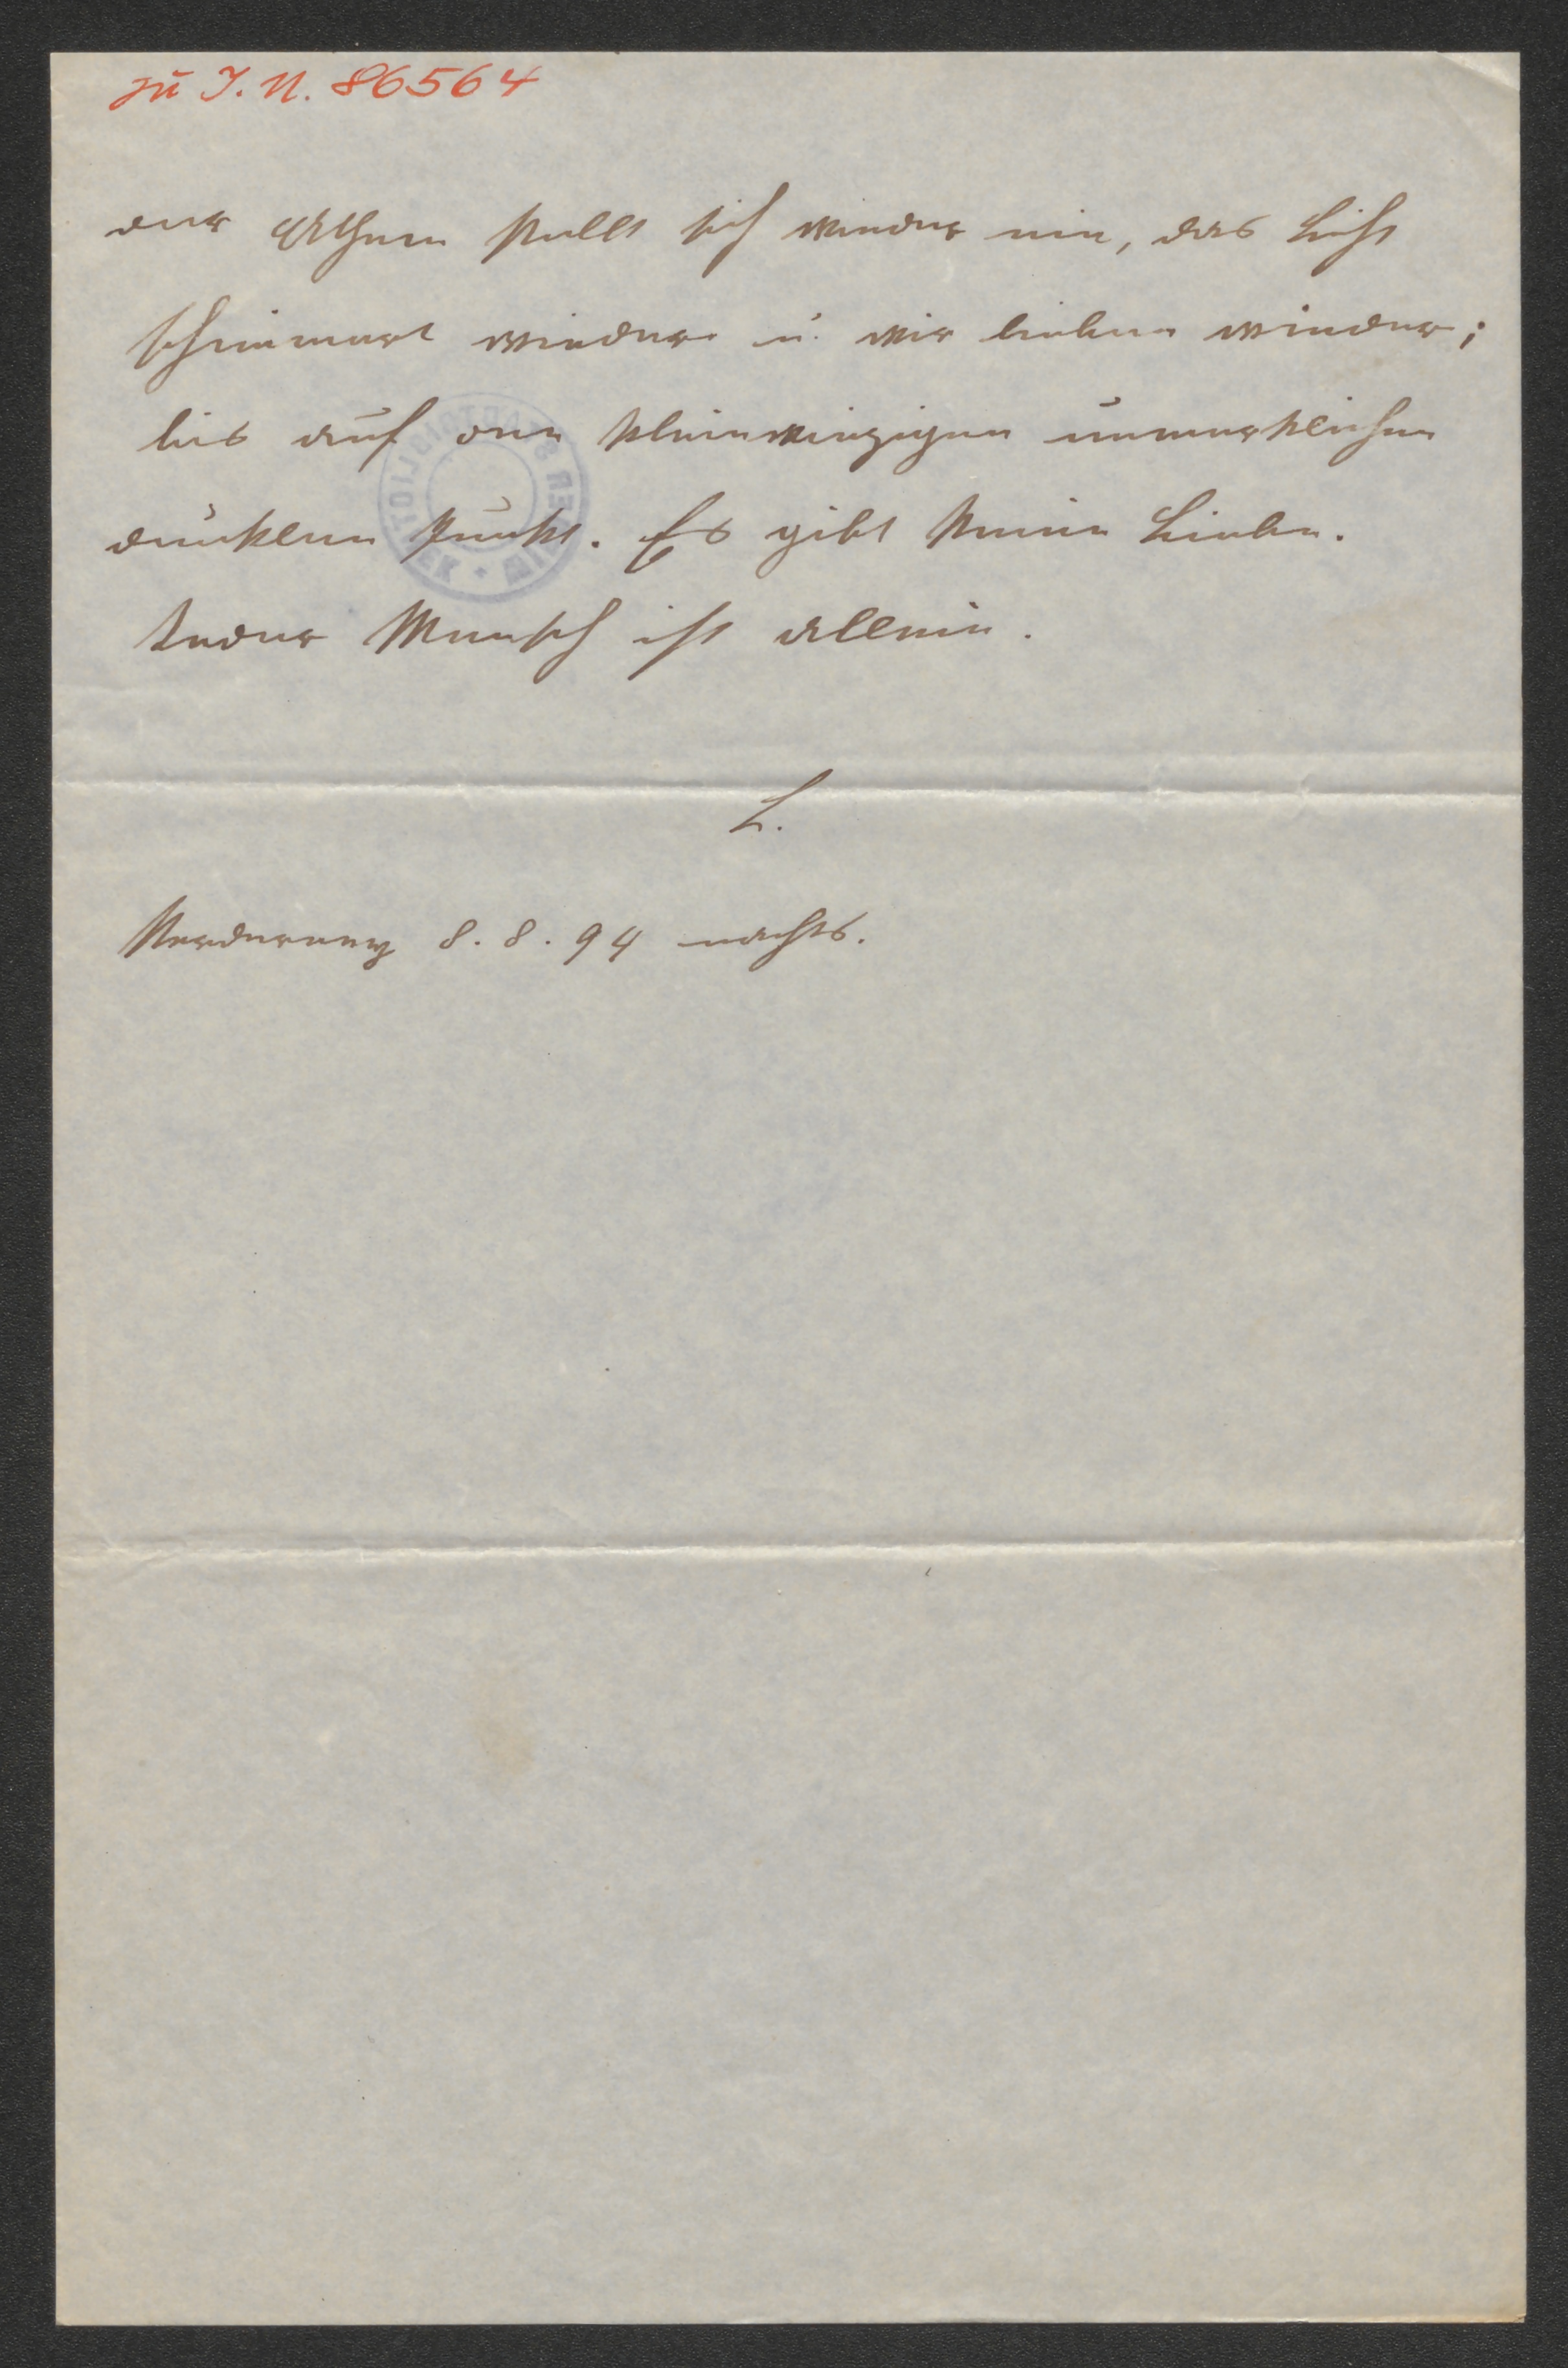 zu I. N. 86564
der Athem stellt sich wieder ein, das Licht
schimmert wieder u. wir lieben wieder;
bis auf den kleinwinzigen unmerklichen
dunklen Punkt. Es gibt keine Liebe.
Jeder Mensch ist allein.
L.
8. 8. 94 nachts.